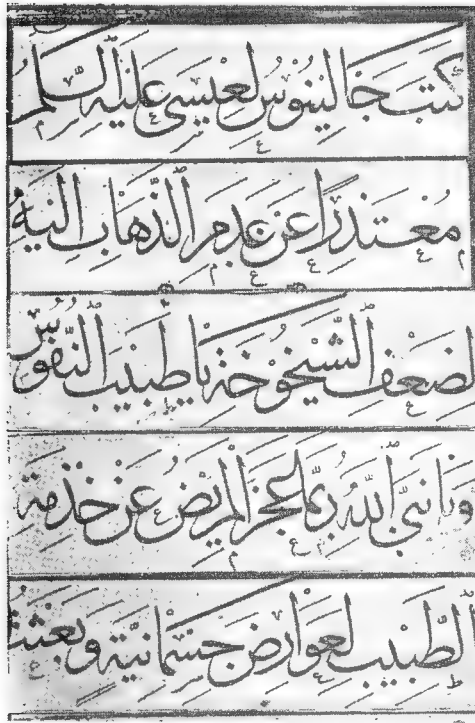 كَتَبَ جَالِينُوسُ لِعِيسَى عَلَيْهِ السَّلَامُ
مُعْتَذِرًا عَنْ عَدَمِ الذَّهَابِ إِلَيْهِ
لِضَعْفِ الشَّيْخُوخَةِ يَا طَبِيبَ النُّفُوسِ
وَيَا نَبِيَّ اللَّهِ رُبَّمَا عَجَزَ الْمَرِيضُ عَنْ خِدْمَةِ
الطَّبِيبِ لِعَوَارِضَ جِسْمَانِيَّةٍ وَبَعَثْتُ